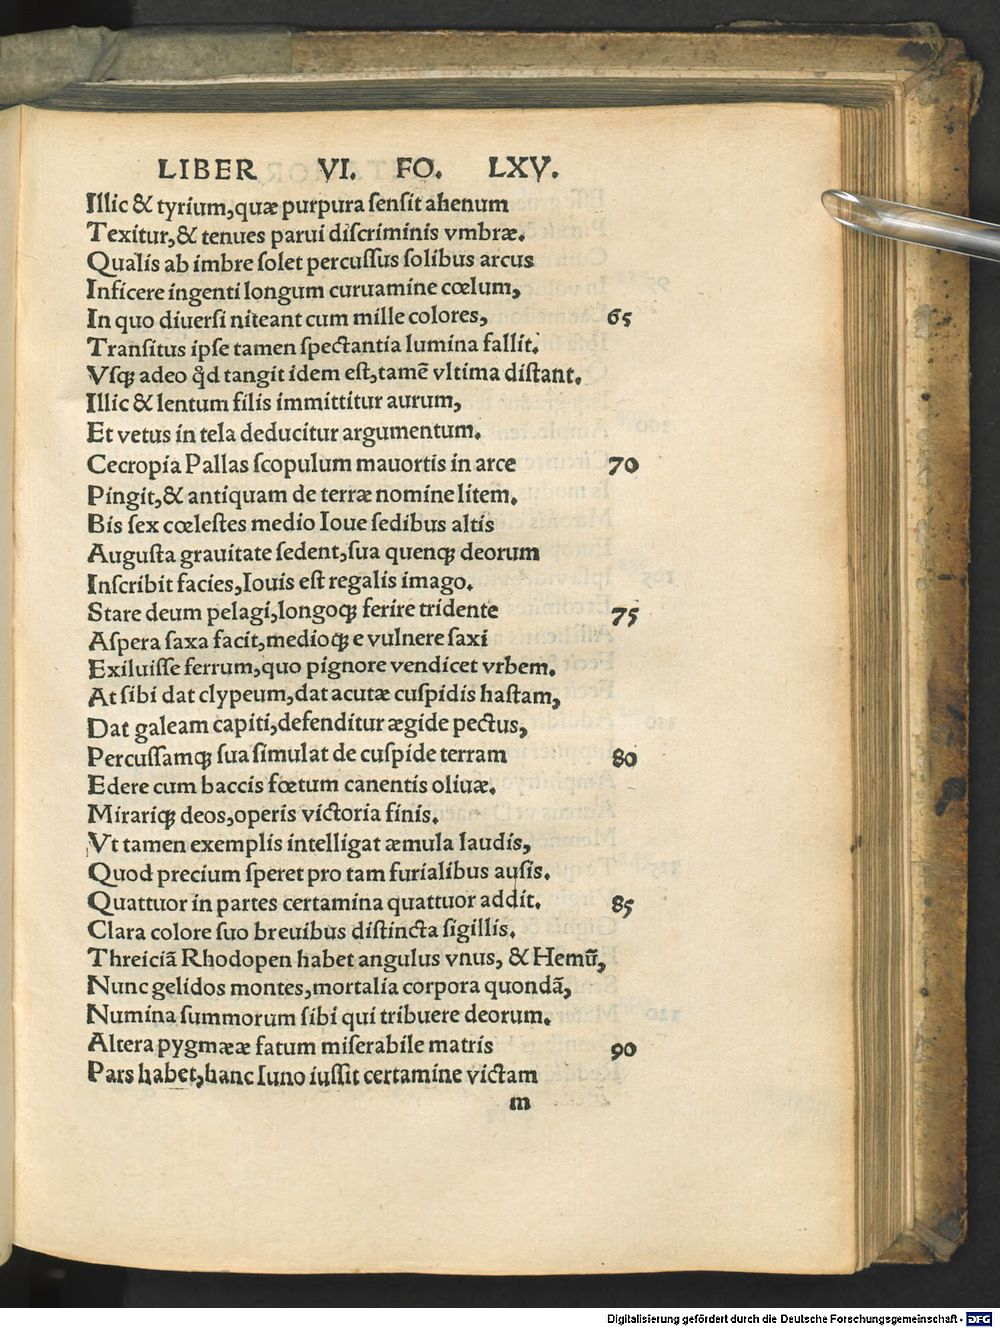 LIBER VI. FO. LXV.
Illic & tyrium,quæ purpura ſenſit ahenum
Texitur,& tenues parui diſcriminis vmbræ.
Qualis ab imbre ſolet percuſſus ſolibus arcus
Inficere ingenti longum curuamine cœlum,
In quo diuerſi niteant cum mille colores, 65
Tranſitus ipſe tamen ſpectantia lumina fallit.
Vſqꝫ adeo qd̛ tangit idem eſt,tamē vltima diſtant.
Illic & lentum filis immittitur aurum,
Et vetus in tela deducitur argumentum.
Cecropia Pallas ſcopulum mauortis in arce 70
Pingit,& antiquam de terræ nomine litem.
Bis ſex cœleſtes medio Ioue ſedibus altis
Auguſta grauitate ſedent,ſua quenqꝫ deorum
Inſcribit facies,Iouis eſt regalis imago.
Stare deum pelagi,longoqꝫ ferire tridente 75
Aſpera ſaxa facit,medioqꝫ e vulnere ſaxi
Exiluiſſe ferrum,quo pignore vendicet vrbem.
At ſibi dat clypeum,dat acutæ cuſpidis haſtam,
Dat galeam capiti,defenditur ægide pectus,
Percuſſamqꝫ ſua ſimulat de cuſpide terram 80
Edere cum baccis fœtum canentis oliuæ.
Mirariqꝫ deos,operis victoria finis.
Vt tamen exemplis intelligat æmula laudis,
Quod precium ſperet pro tam furialibus auſis.
Quattuor in partes certamina quattuor addit. 85
Clara colore ſuo breuibus diſtincta ſigillis.
Threiciā Rhodopen habet angulus vnus, & Hemū,
Nunc gelidos montes,mortalia corpora quondā,
Numina ſummorum ſibi qui tribuere deorum.
Altera pygmææ fatum miſerabile matris 90
Pars habet,hanc Iuno iuſſit certamine victam
m
Digitalisierung gefördert durch die Deutsche Forschungsgemeinschaft - DFG